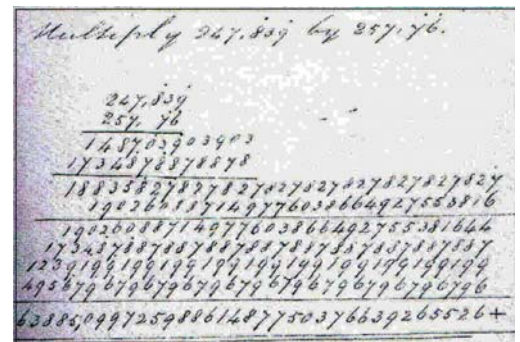 Multiply 247,839 by 257,76.
247,839
257,76
1487,03903903
1734878878878
18835827827827827827827827827827
190260887149776038664927553816
19026088714977603866492755381644
1734878878878878878878878878887
1239199199199199199199199199199
495679679679679679679679679796
63885,09972598861487750376639265526+